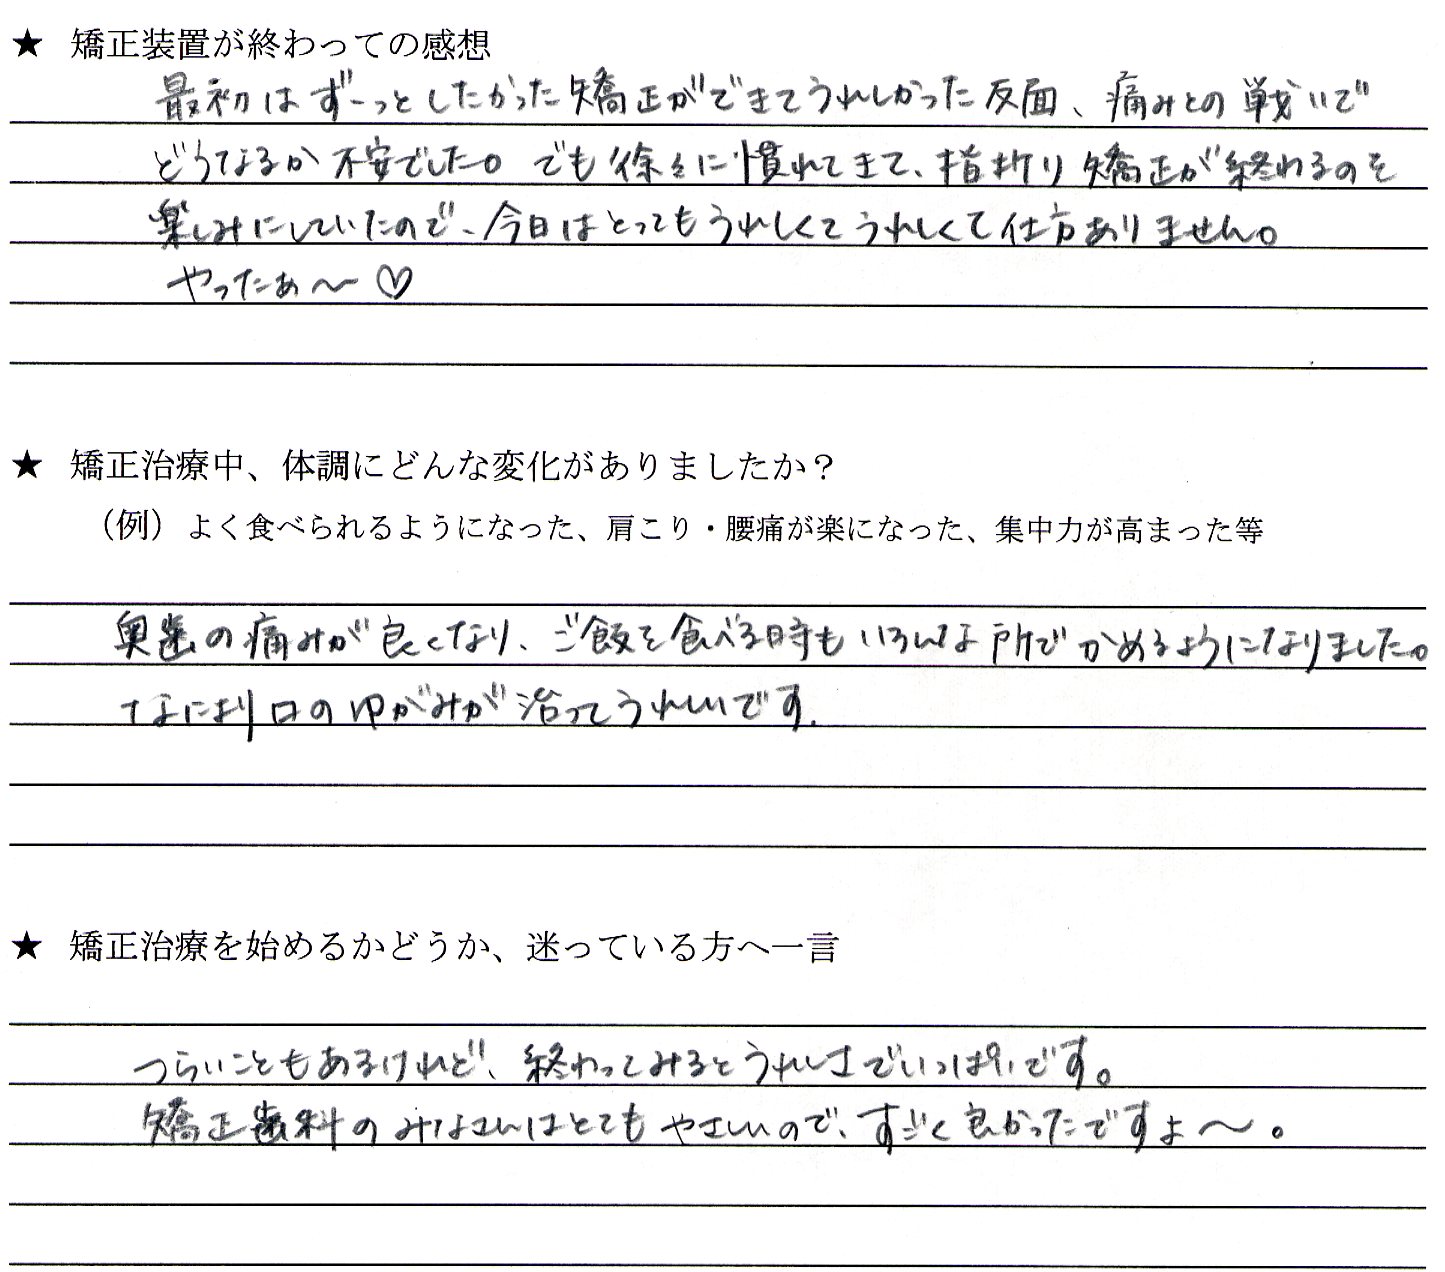 ★ 矯正装置が終わっての感想
最初はずーっとしたかった矯正ができてうれしかった反面、痛みとの戦いで
どうなるか不安でした。でも徐々に慣れてきて、指折り矯正が終わるのを
楽しみにしていたので、今日はとってもうれしくてうれしくて仕方ありません。
やったぁ〜♡
★ 矯正治療中、体調にどんな変化がありましたか？
（例）よく食べられるようになった、肩こり・腰痛が楽になった、集中力が高まった等
奥歯の痛みが良くなり、ご飯を食べる時もいろんな所でかめるようになりました。
なにより口のゆがみが治ってうれしいです.
★ 矯正治療を始めるかどうか、迷っている方へ一言
つらいこともあるけれど、終わってみるとうれしさでいっぱいです。
矯正歯科のみなさんはとてもやさしいので、すごく良かったですよ〜。